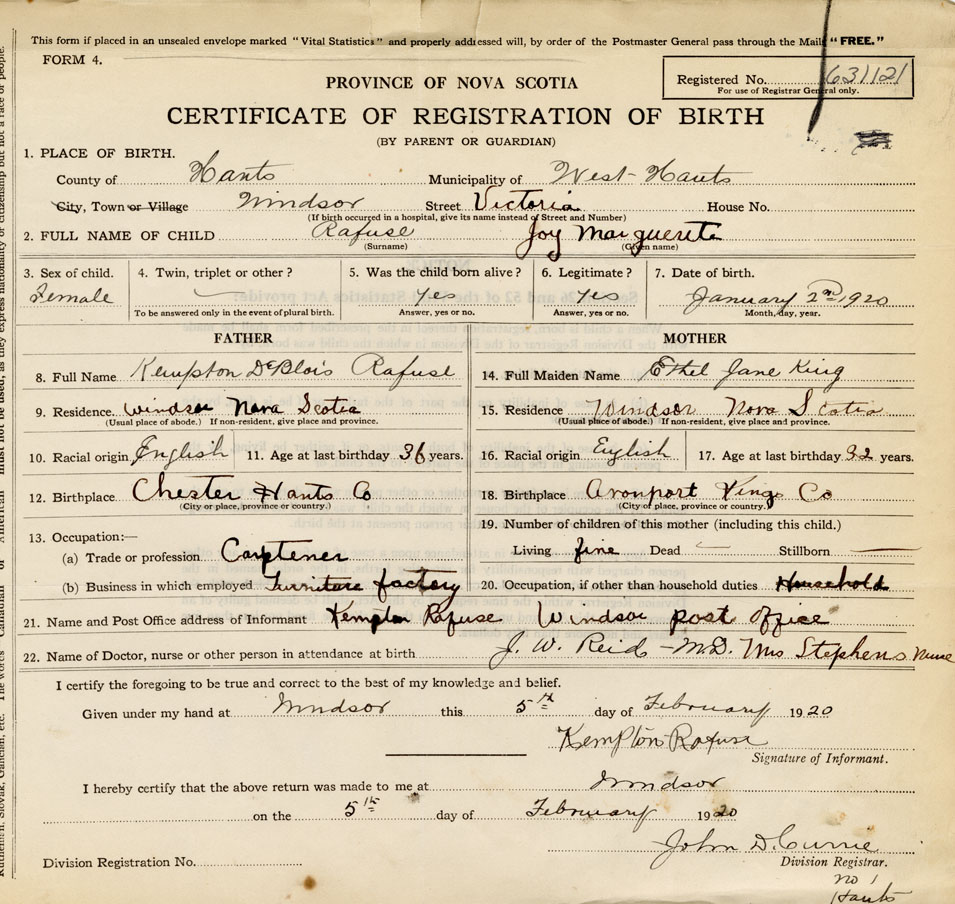 This form if placed in an unsealed envelope marked "Vital Statistics" and properly addressed will, by order of the Postmaster General pass through the Mail, "FREE."
FORM 4.
Registered No. 631121
For use of Registrar General only.
PROVINCE OF NOVA SCOTIA
CERTIFICATE OF REGISTRATION OF BIRTH
(BY PARENT OR GUARDIAN)
1. PLACE OF BIRTH.
County of Hants Municipality of West Hants
City, Town or Village Windsor Street Victoria House No.
(If birth occurred in a hospital, give its name instead of Street and Number)
2. FULL NAME OF CHILD Rafuse Joy Marguerite
(Surname) (Given name)
3. Sex of child. 4. Twin, triplet or other? 5. Was the child born alive? 6. Legitimate? 7. Date of birth.
Female yes yes January 2nd 1920
To be answered only in the event of plural birth. Answer, yes or no. Answer, yes or no. Month, day, year.
FATHER MOTHER
8. Full Name Kempton DeBlois Rafuse 14. Full Maiden Name Ethel Jane King
9. Residence. Windsor Nova Scotia 15. Residence Windsor Nova Scotia
(Usual place of abode.) If non-resident, give place and province. (Usual place of abode.) If non-resident, give place and province.
10. Racial origin English 11. Age at last birthday 36 years. 16. Racial origin English 17. Age at last birthday 32 years.
12. Birthplace Chester Hants Co 18. Birthplace Avonport Kings Co
(City or place, province or country.) (City or place, province or country.)
13. Occupation:— 19. Number of children of this mother (including this child.)
(a) Trade or profession Carptener Living five Dead Stillborn
(b) Business in which employed Furniture factory 20. Occupation, if other than household duties Household
21. Name and Post Office address of Informant Kempton Rafuse Windsor post office
22. Name of Doctor, nurse or other person in attendance at birth J. W. Reid - M.D. Mrs Stephens Nurse
I certify the foregoing to be true and correct to the best of my knowledge and belief.
Given under my hand at Windsor this 5th day of February 1920
Kempton Rafuse
Signature of Informant.
I hereby certify that the above return was made to me at Windsor
on the 5th day of February 1920
John D. Currie
Division Registrar.
Division Registration No.
no 1
Hants